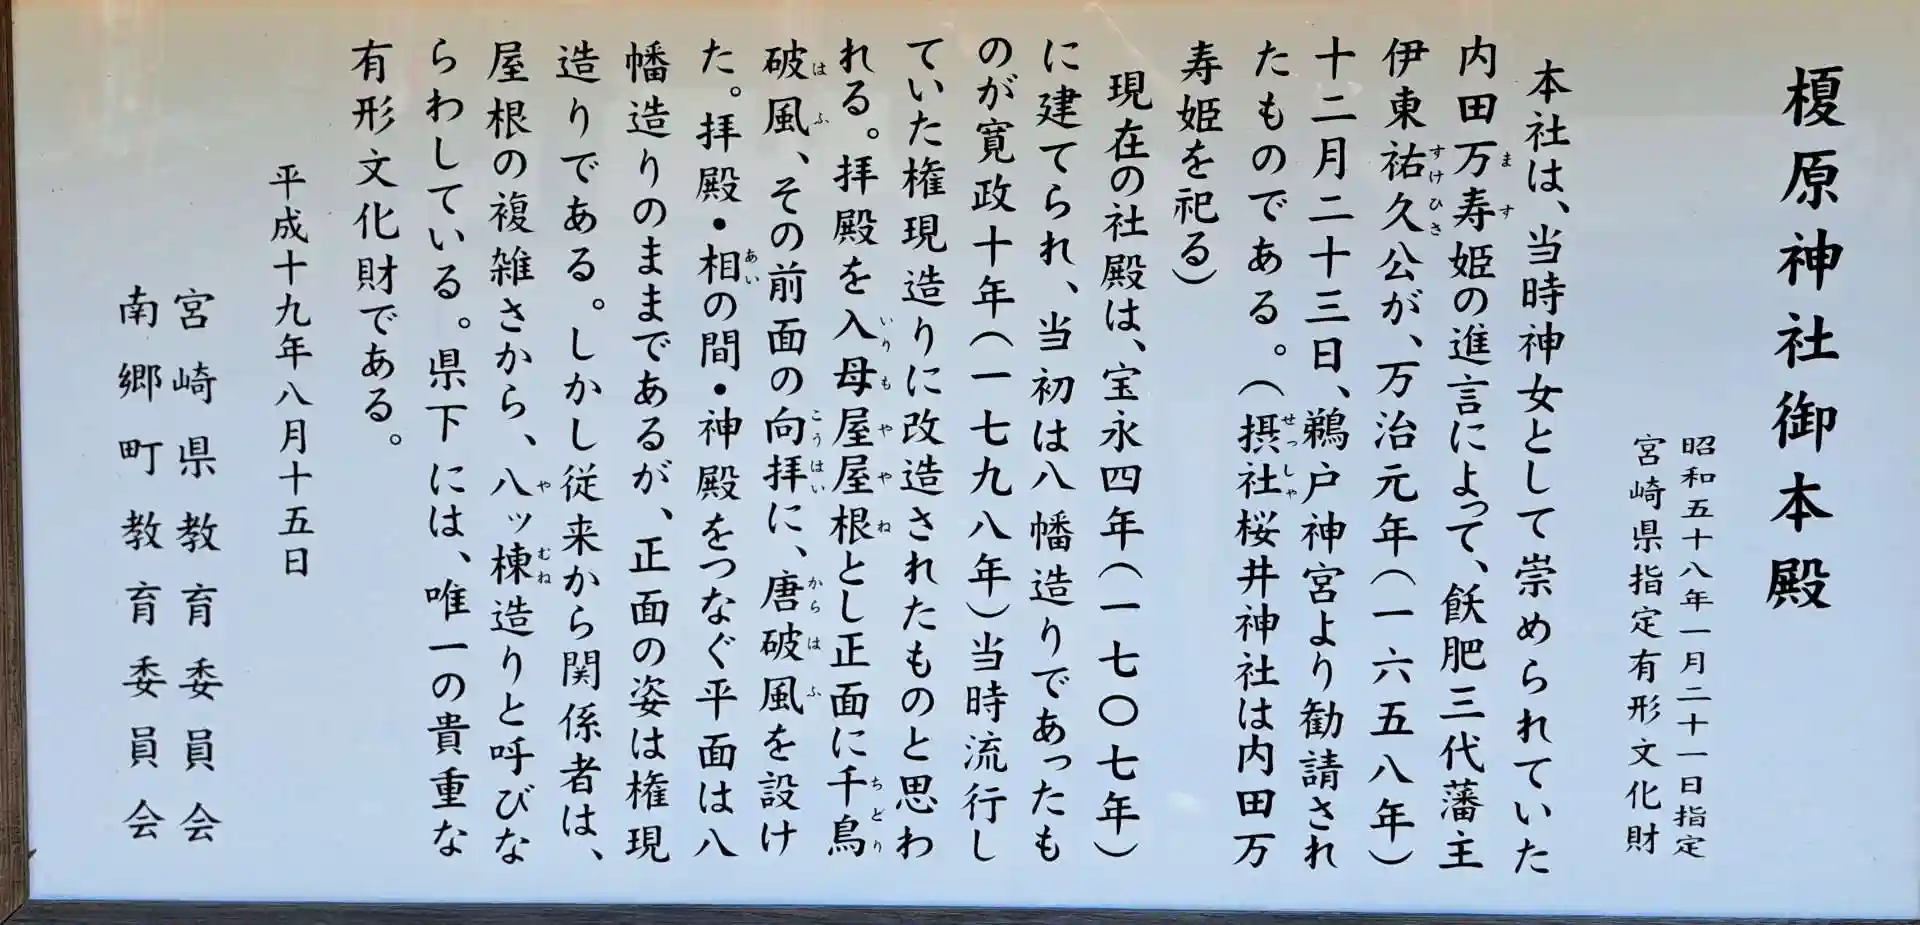 榎原神社御本殿
昭和五十八年一月二十一日指定
宮崎県指定有形文化財
本社は、当時神女として崇められていた
内田万寿姫の進言によって、飫肥三代藩主
伊東祐久公が、万治元年(一六五八年)
十二月二十三日、鵜戸神宮より勧請され
たものである。(摂社桜井神社は内田万
寿姫を祀る)
現在の社殿は、宝永四年(一七〇七年)
に建てられ、当初は八幡造りであったも
のが寛政十年(一七九八年)当時流行し
ていた権現造りに改造されたものと思わ
れる。拝殿を入母屋屋根とし正面に千鳥
破風、その前面の向拝に、唐破風を設け
た。拝殿・相の間・神殿をつなぐ平面は八
幡造りのままであるが、正面の姿は権現
造りである。しかし従来から関係者は、
屋根の複雑さから、八ッ棟造りと呼びな
らわしている。県下には、唯一の貴重な
有形文化財である。
平成十九年八月十五日
宮崎県教育委員会
南郷町教育委員会